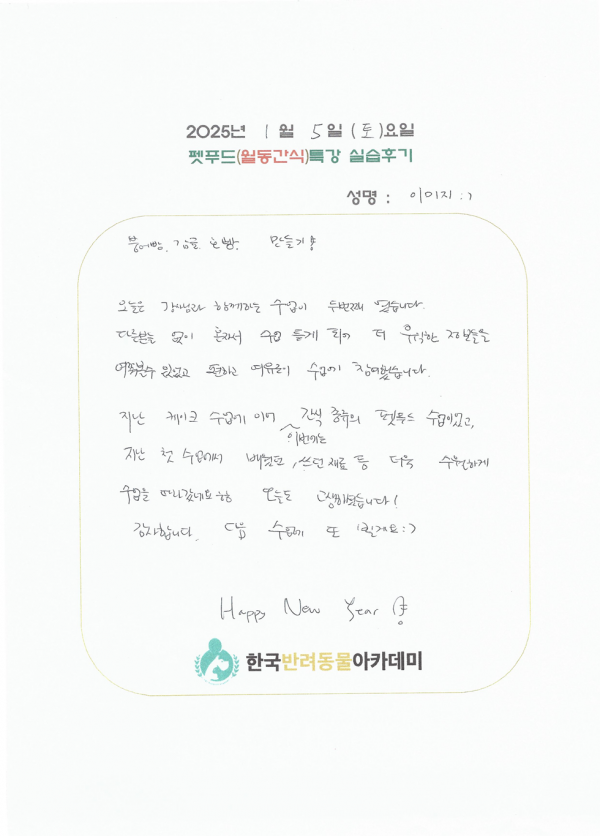 2025년 1월 5일 (토)요일
펫푸드(월동간식)특강 실습후기
성명 : 이미지 :)
붕어빵, 감귤 호빵, 만들기
오늘은 강사님과 함께하는 수업이 두번째 였습니다.
다른분들 없이 혼자서 수업 듣게 되어 더 유익한 정보들을
여쭤볼수 있었고 편하고 여유로이 수업에 참여했습니다.
지난 케이크 수업에 이어 이번에는 간식 종류의 펫푸드 수업이었고,
지난 첫 수업에서 배웠던, 쓰던 재료 등 더욱 수월하게
수업을 따라갔네요 오늘도 고생하셨습니다!
감사합니다. 다음 수업에 또 뵐게요 :)
Happy New Year
한국반려동물아카데미